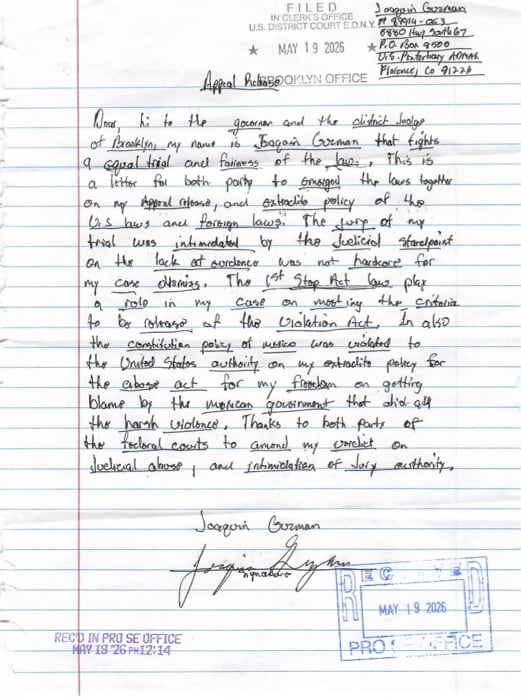 FILED
IN CLERK'S OFFICE
U.S. DISTRICT COURT E.D.N.Y.
★ MAY 19 2026 ★
BROOKLYN OFFICE
Joaquin Guzman
# 89914-053
5880 Hwy South 67
P.O. Box 8500
U.S. Penitentiary ADMAX
Florence, Co 81226
Appeal Release
Dear, hi to the governor and the district Judge
of Brooklyn, my name is Joaquin Guzman that fights
a equal trial and fairness of the law. This is
a letter for both party to the laws together
on my Appeal release, and extradite policy of the
U.S laws and foreign laws. The Jury of my
trial was intimidated by the Judicial
on the lack of evidence was not hardcore for
my case dismiss. The 1st Stop Act law play
a role in my case on meeting the criteria
to be release of the Violation Act. In also
the constitution policy of mexico was violated to
the United States authority on my extradite policy for
the abuse act for my freedom on getting
blame by the mexican government that did all
the harsh violence. Thanks to both parts of
the federal courts to amend my verdict on
Judicial abuse, and intimidation of Jury authority.
Joaquin Guzman
REC'D IN PRO SE OFFICE
MAY 19 '26 PM12:14
MAY 19 2026
PRO SE OFFICE